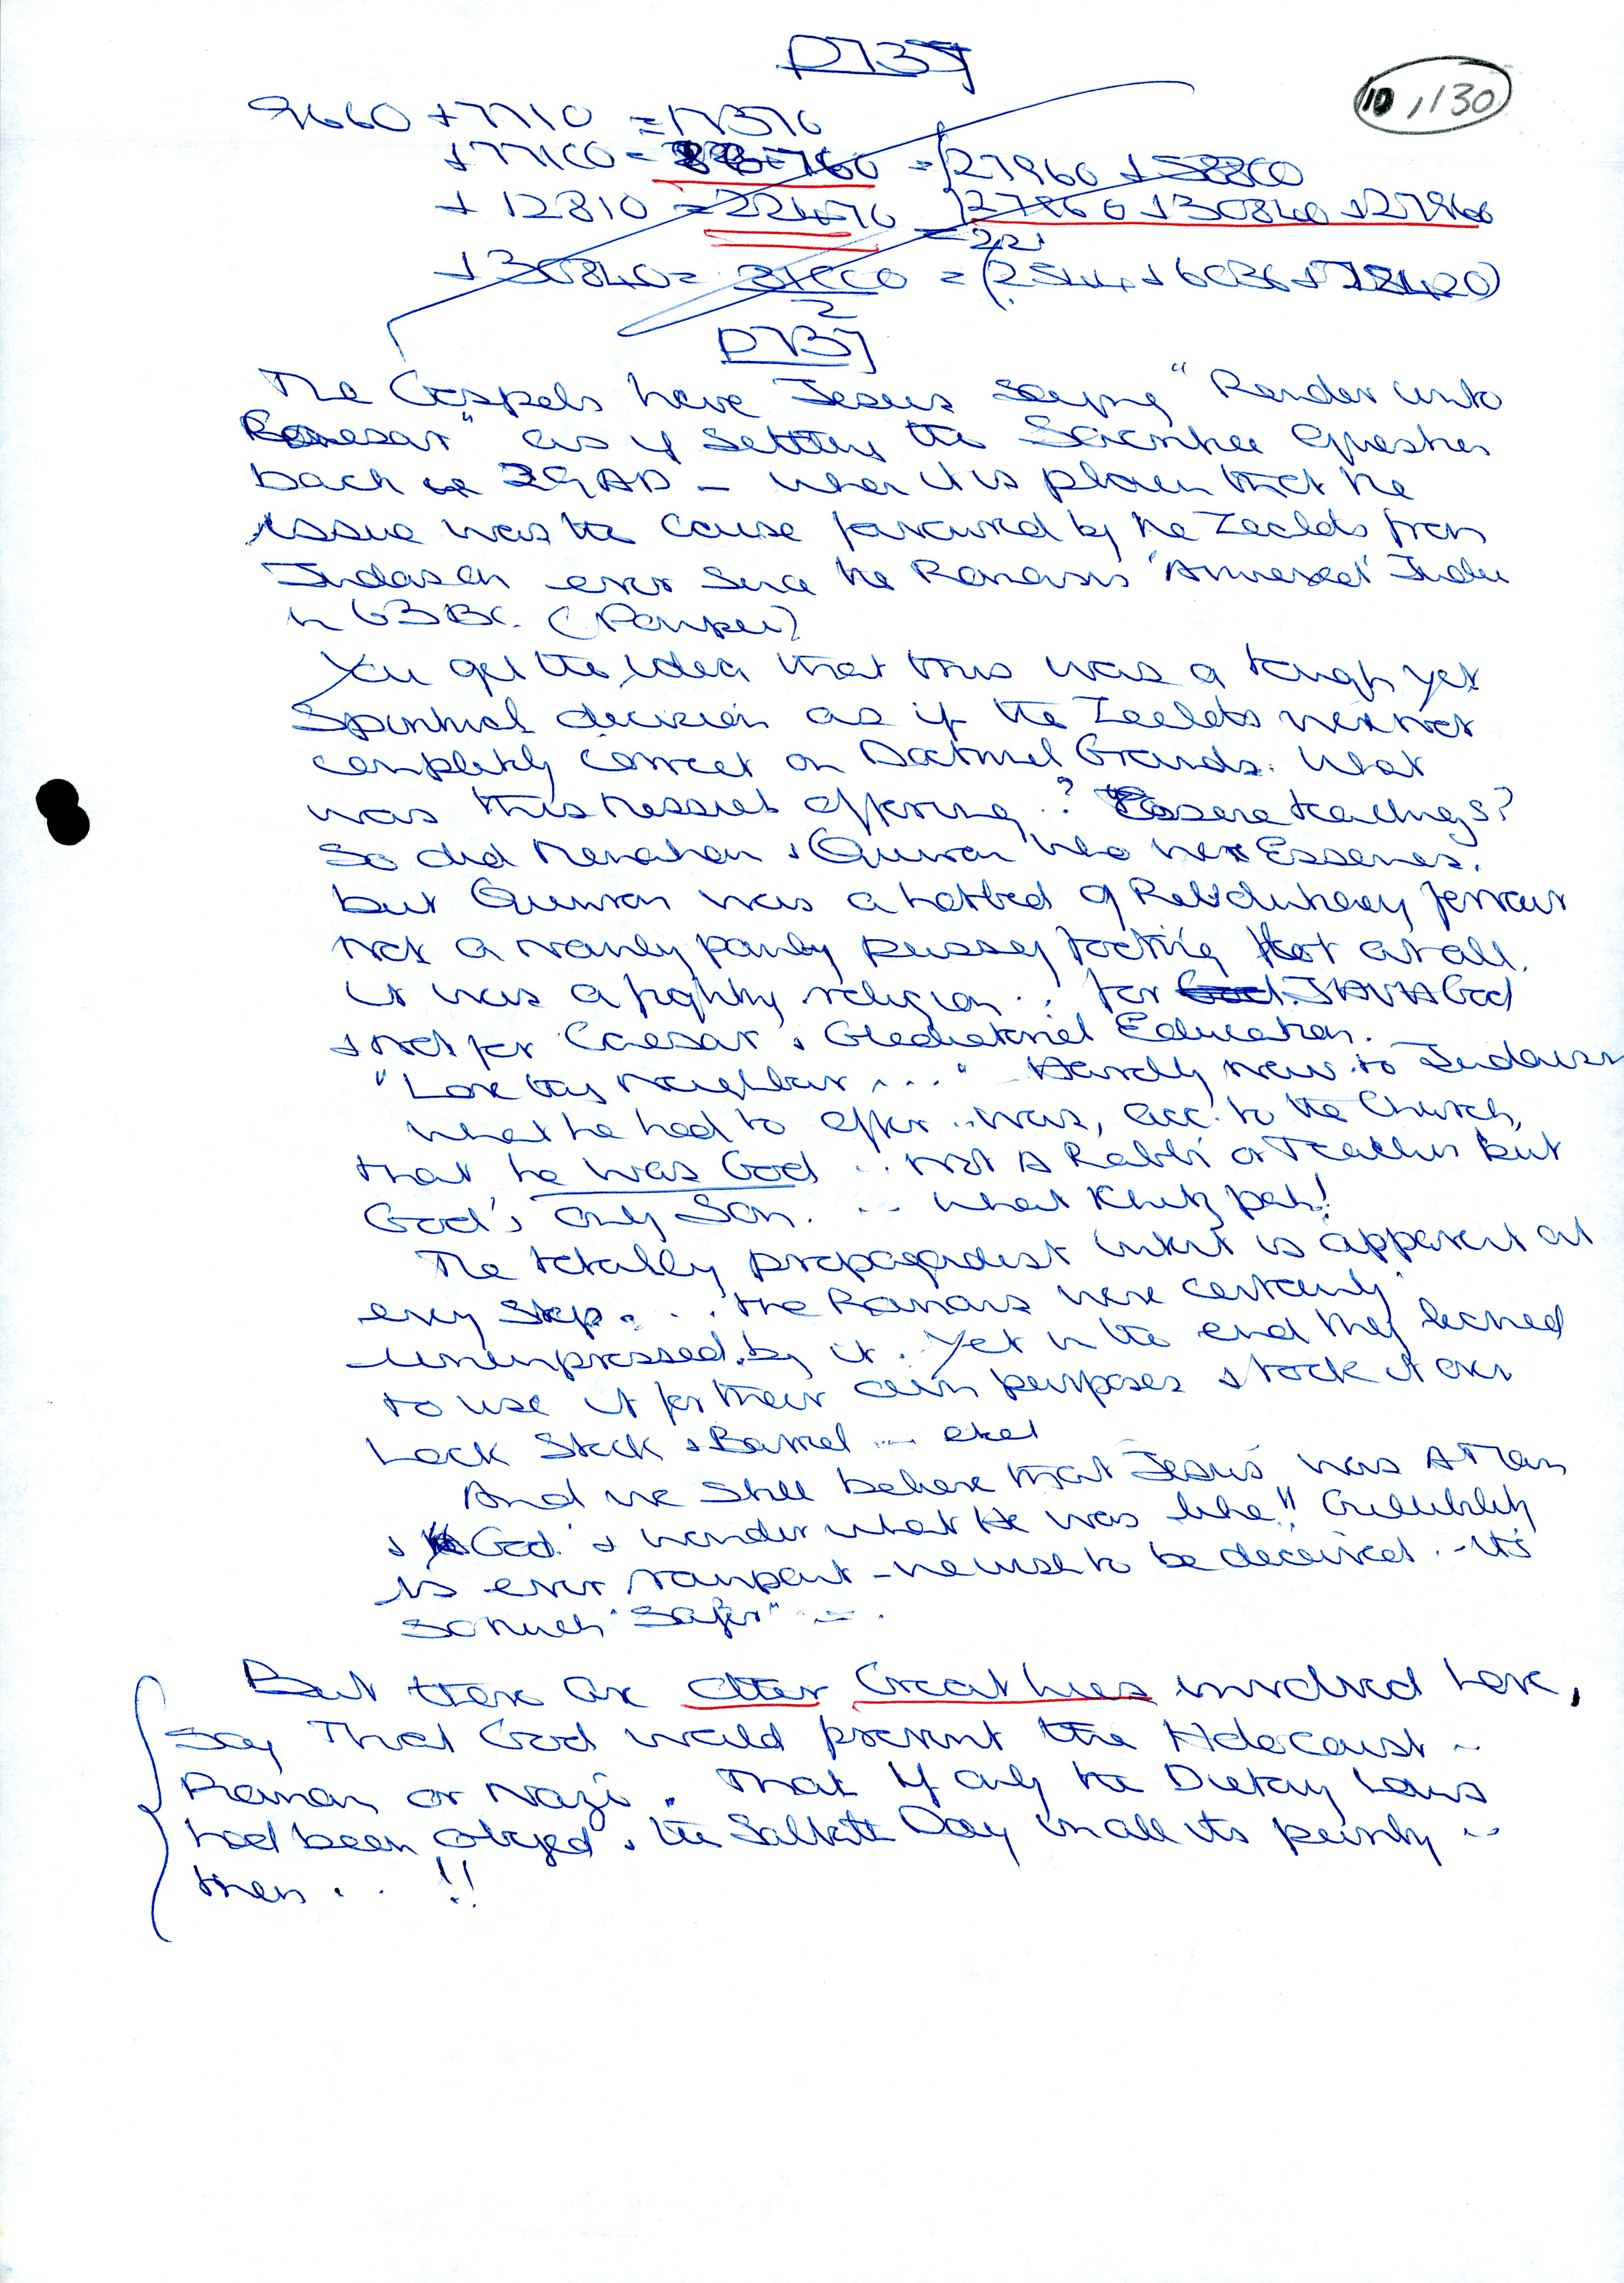 10,130
9660 + 7710 = 17370
+ 77100 =
= 27960 + 58800
+ 12810 = 22470
27960 + 130840 + 27960
+ 30840 =
The Gospels have Jesus saying "Render unto
" as if settling the Sacrifice Question
back in 29 AD – when it is plain that the
issue was the cause favoured by the Zealots from
Judas on ever since the Romans 'Annexed' Judea
in 63 BC. (Pompey)
You get the idea that this was a tough yet
Spiritual decision as if the Zealots were not
completely correct on Doctrinal Grounds. What
was this Messiah offering? Essene teachings?
So did Menahem & Qumran who were Essenes.
but Qumran was a hotbed of Revolutionary fervour
not a namby pamby pussy footing at all.
it was a fighting religion .. for God. God
& not for Caesar & Gladiatorial Education.
"Love thy Neighbour ..." Hardly new to Judaism
what he had to offer .. was, acc. to the Church,
that he was God .. not A Rabbi or Teacher but
God's only Son. .. what Khutzpah!
The totally propagandist intent is apparent at
every step. .. the Romans were certainly
unimpressed by it. Yet in the end they learned
to use it for their own purposes & took it over
Lock Stock & Barrel ...
And we still believe that Jesus was A Man
& God & wonder what He was like!! Gullibility
is ever rampant – to be deceived. - its
so much "safer" – .
But there are other Great lies involved here,
say That God would prevent the Holocaust –
Roman or Nazi. That if only the Dietary Laws
had been obeyed & the Sabbath Day in all its purity ..
then . . !!